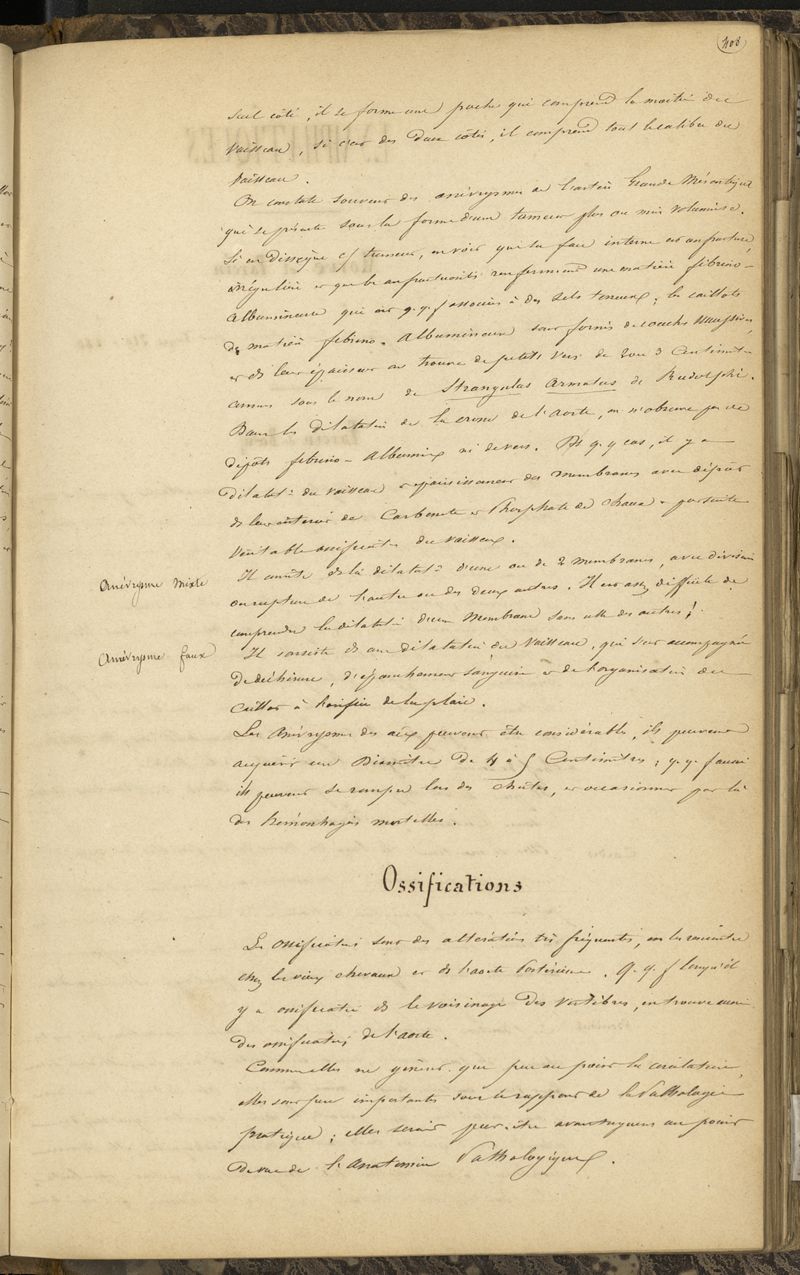 408
seul côté, il se forme une poche qui comprend la moitié du
vaisseau, si c'est des deux côtés, il comprend tout le calibre du
vaisseau.
On constate souvent des anévrysmes de l'artère Grande Mésentérique
qui se présente sous la forme d'une tumeur plus ou moins volumineuse.
Si on dissèque c/ tumeur, on voit que la face interne est anfractueuse,
irrégulière et que les anfractuosités renferment une matière fibrino-
Albumineuse qui est q.q.f associée à des sels terreux; les caillots
de matière fibrino-Albumineuse sont formés de couches
et ds leur épaisseur on trouve de petits vers de 2 ou 3 Centimètres
connus sous le nom de Strongulus Armatus de Rudolphi.
Dans les dilatations de la crosse de l'aorte, on n'observe pas de
dépôts fibrino-Albumineux ni de vers. Ds q.q cas, il y a
Dilatat° du vaisseau et épaississement des membranes avec dépôts
ds leur intérieur de Carbonate et Phosphate de chaux et par suite
véritable ossification du vaisseau.
Anévrysme Mixte
Il consiste ds la dilatat° d'une ou de 2 membranes, avec division
ou rupture de l'autre ou des deux autres. Il est assez difficile de
comprendre la dilatat° d'une Membrane sans celle des autres!
Anévrysme faux
Il consiste ds une dilatation du vaisseau, qui s'est accompagnée
de déchirure, d'épanchement sanguin et de l'organisation du
Caillot à l'orifice de la plaie.
Les Anévrysmes des peuvent être considérable, ils peuvent
acquérir un Diamètre de 4 à 5 Centimètres; q.q.f aussi
ils peuvent se rompre lors des chutes, et occasionner par là
des hémorrhagies mortelles.
Ossifications
Les Ossifications sont des altérations très fréquentes, on les rencontre
chez les vieux chevaux et ds l'aorte Postérieure. Q.q.f lorsqu'il
y a ossification ds le voisinage des Vertèbres, on trouve aussi
des ossifications de l'aorte.
Comme elles ne gênent que peu ou point la circulation,
elles sont peu importantes sous le rapport de la Pathologie
pratique; elles seraient peut-être avantageuses au point
de vue de l'Anatomie Pathologique.